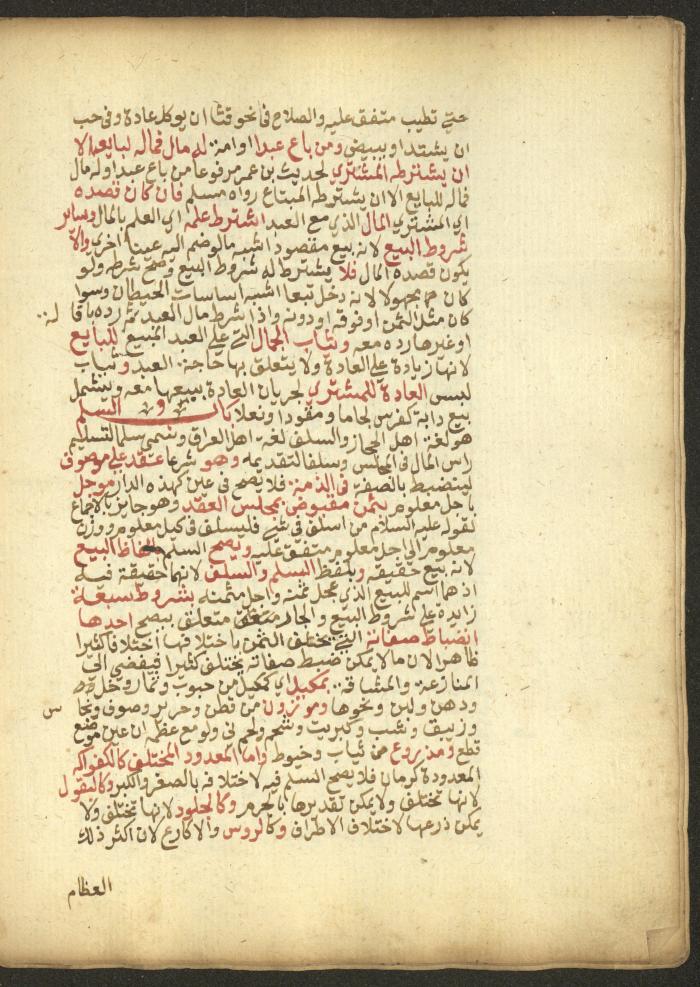 حتى تطيب متفق عليه والصلاح في نحو قثا ان يوكل عادة وفي حب
ان يشتد او يبيض ومن باع عبدا او امة له مال فماله لبايعه الا
ان يشترطه المشتري لحديث بن عمر مرفوعا من باع عبدا وله مال
فماله للبايع الا ان يشترطه المبتاع رواه مسلم فان كان قصده
اي المشتري المال الذي مع العبد اشترط علمه اي العلم بالمال وساير
شروط البيع لانه بيع مقصود اشبه ما لو ضم اليه عينا اخرى والا
يكون قصده المال فلا يشترط له شروط البيع وصح شرطه ولو
كان مجهولا لانه دخل تبعا اشبه اساسات الحيطان وسوا
كان مثل الثمن او فوقه او دونه واذا شرط مال العبد ثم رده باقالة
او غيرها رده معه وثياب الجمال التي على العبد المبيع للبايع
لانها زيادة على العادة ولا يتعلق بها حاجة العبد وثياب
لبس العادة للمشتري لجريان العادة ببيعها معه ويشمل
بيع دابة كفرس لجاما ومقودا ونعلا باب السلم
هو لغة اهل الحجاز والسلف لغة اهل العراق وسمي سلما لتسليم
راس المال في المجلس وسلفا لتقديمه وهو شرعا عقد على موصوف
ينضبط بالصفة في الذمة فلا يصح في عين كهذه الدار موجل
باجل معلوم بثمن مقبوض بمجلس العقد وهو جايز بالاجماع
لقوله عليه السلام من اسلف في شي فليسلف في كيل معلوم ووزن
معلوم الى اجل معلوم متفق عليه ويصح السلم بالفاظ البيع
لانه بيع حقيقة وبلفظ السلم والسلف لانهما حقيقة فيه
اذ هما اسم للبيع الذي عجل ثمنه واجل مثمنه بشروط سبعة
زايدة على شروط البيع والجار متعلق بيصح احدها
انضباط صفاته التي يختلف الثمن باختلافها اختلافا كثيرا
ظاهرا لان ما لا يمكن ضبط صفاته يختلف كثيرا فيفضي الى
المنازعة والمشاقة بمكيل اي كمكيل من حبوب وثمار وخل
ودهن ولبن ونحوها وموزون من قطن وحرير وصوف ونحاس
وزيبق وشب وكبريت وشحم ولحم ني ولو مع عظمه ان عين موضع
قطع ومذروع من ثياب وخيوط واما المعدود المختلف كالفواكه
المعدودة كرمان فلا يصح السلم فيه لاختلافه بالصغر والكبر وكالبقول
لانها تختلف ولا يمكن تقديرها بالحزم وكالجلود لانها تختلف ولا
يمكن ذرعها لاختلاف الاطراف وكالروس والاكارع لان اكثر ذلك
العظام